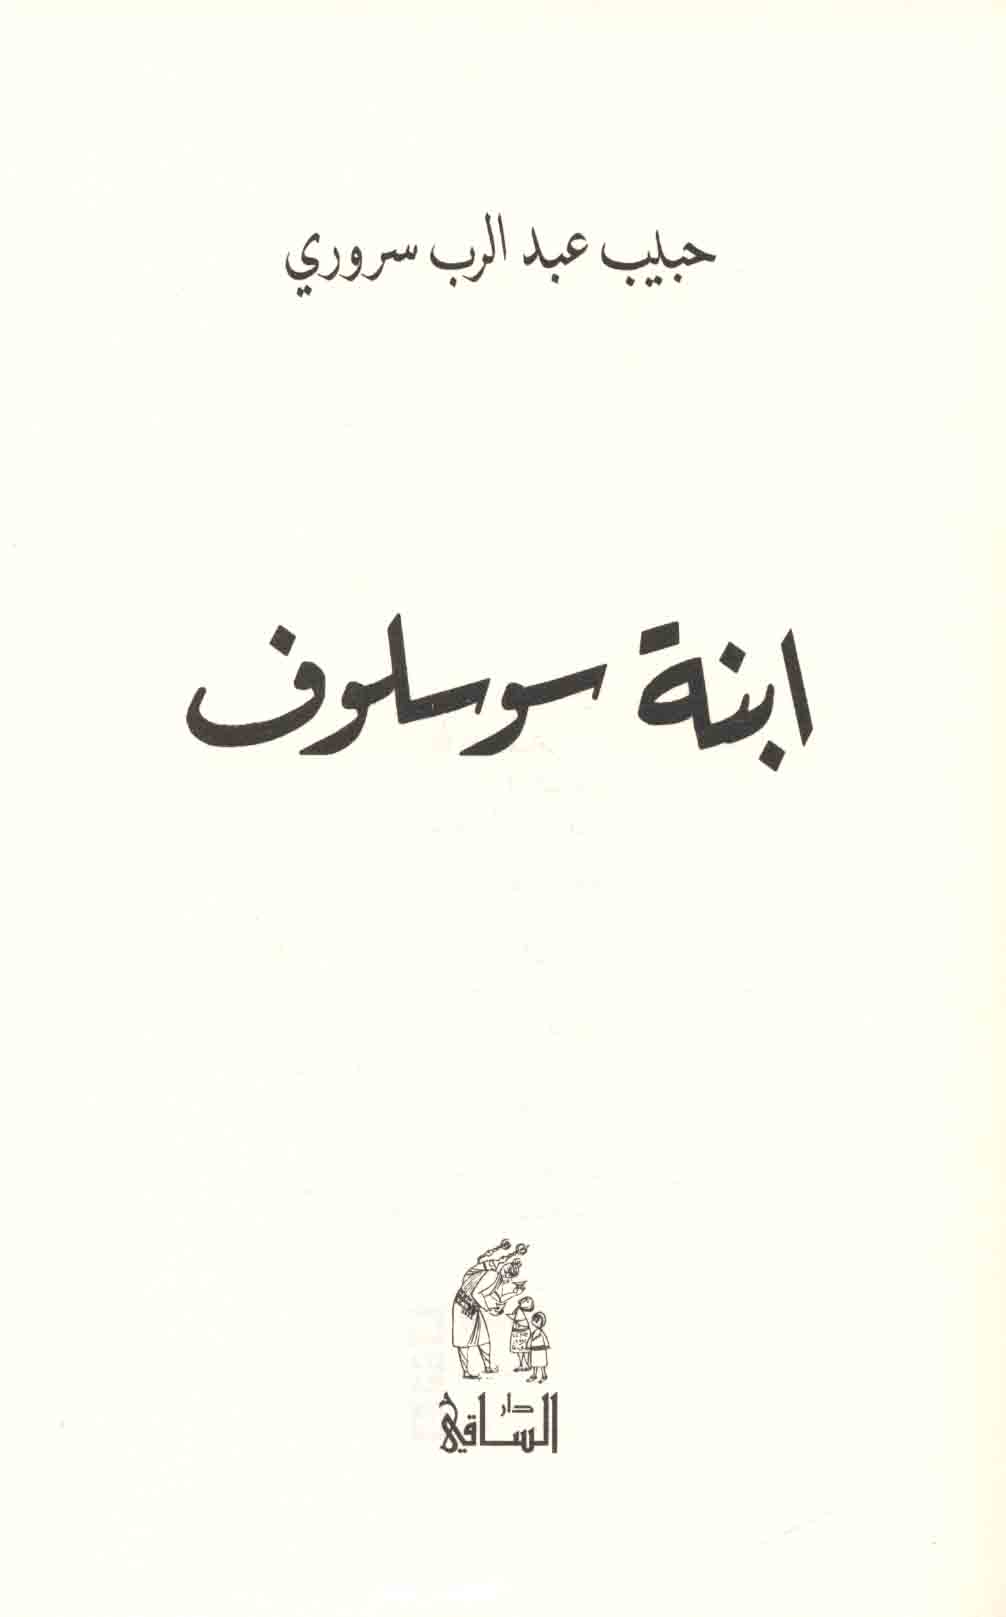 حبيب عبد الرب سروري
ابنة سوسلوف
دار
الساقي